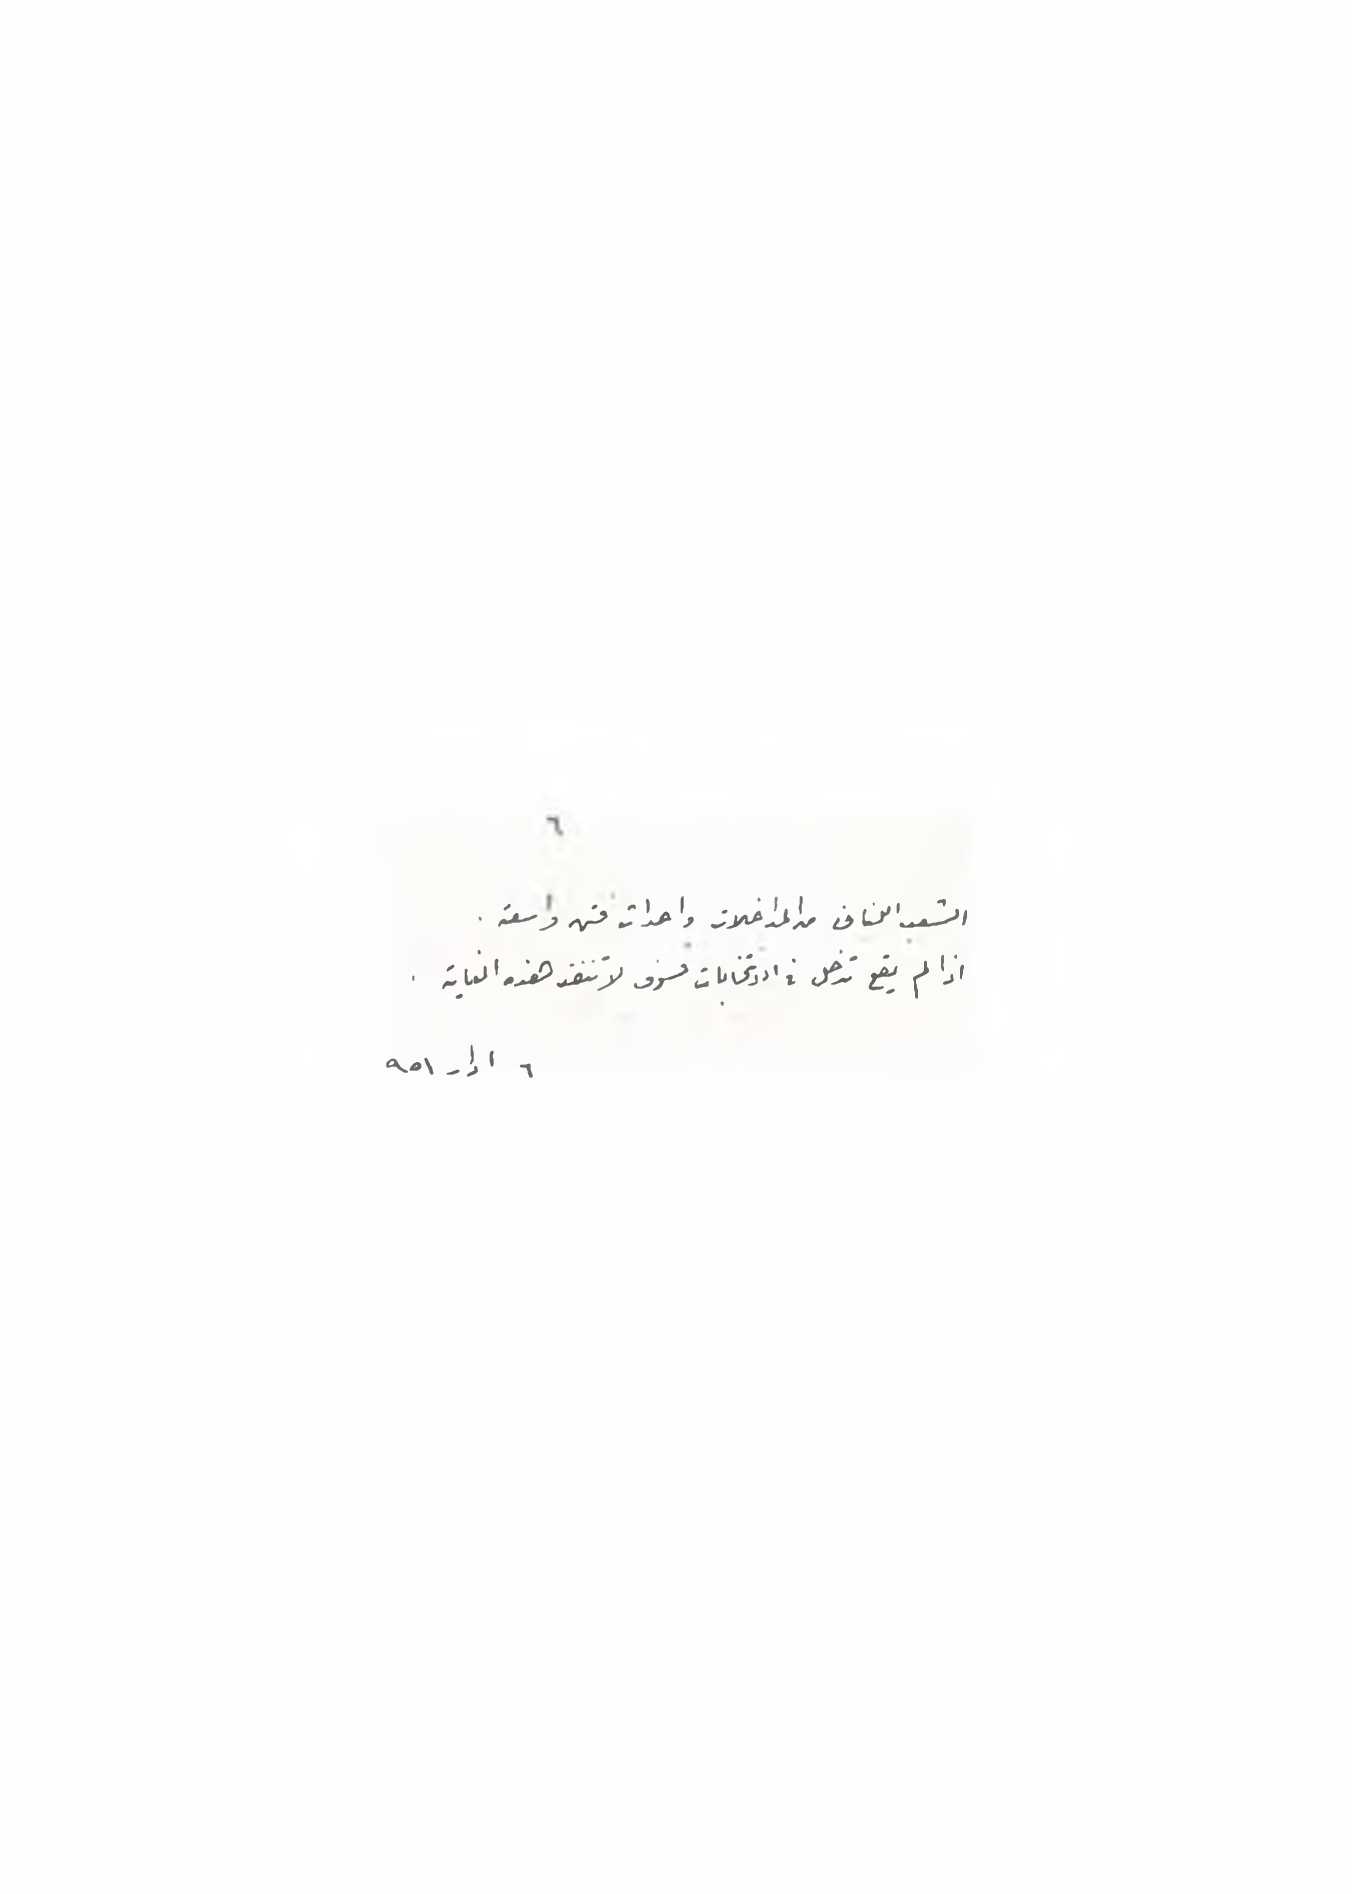 ٦
الشعب اللبناني من المداخلات واحداث فتن واسعة .
اذا لم يقع تدخل في الانتخابات فسوف لا تنفذ هذه الغاية .
٦ اذار ٩٥١